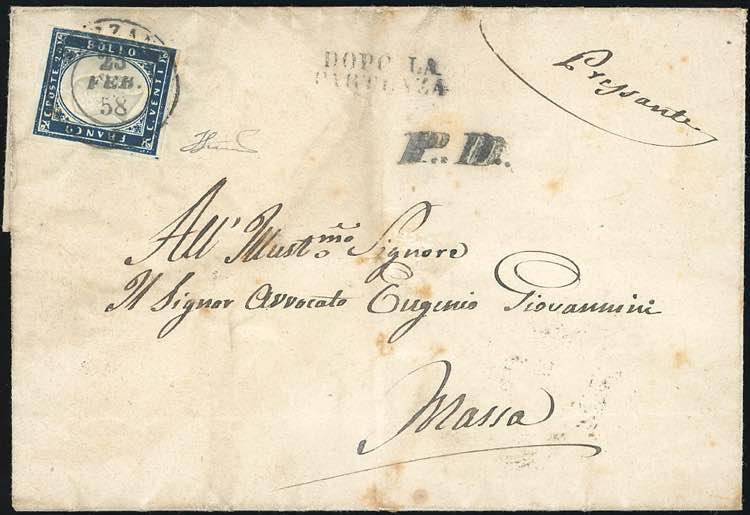 BOLLO
C. POSTE 20
C. VENTI
FRANCO
25
FEB.
58
DOPO LA
PARTENZA
Pressante
P.D.
All' Illust.mo Signore
Il Signor Avvocato Eugenio Giovannini
Massa